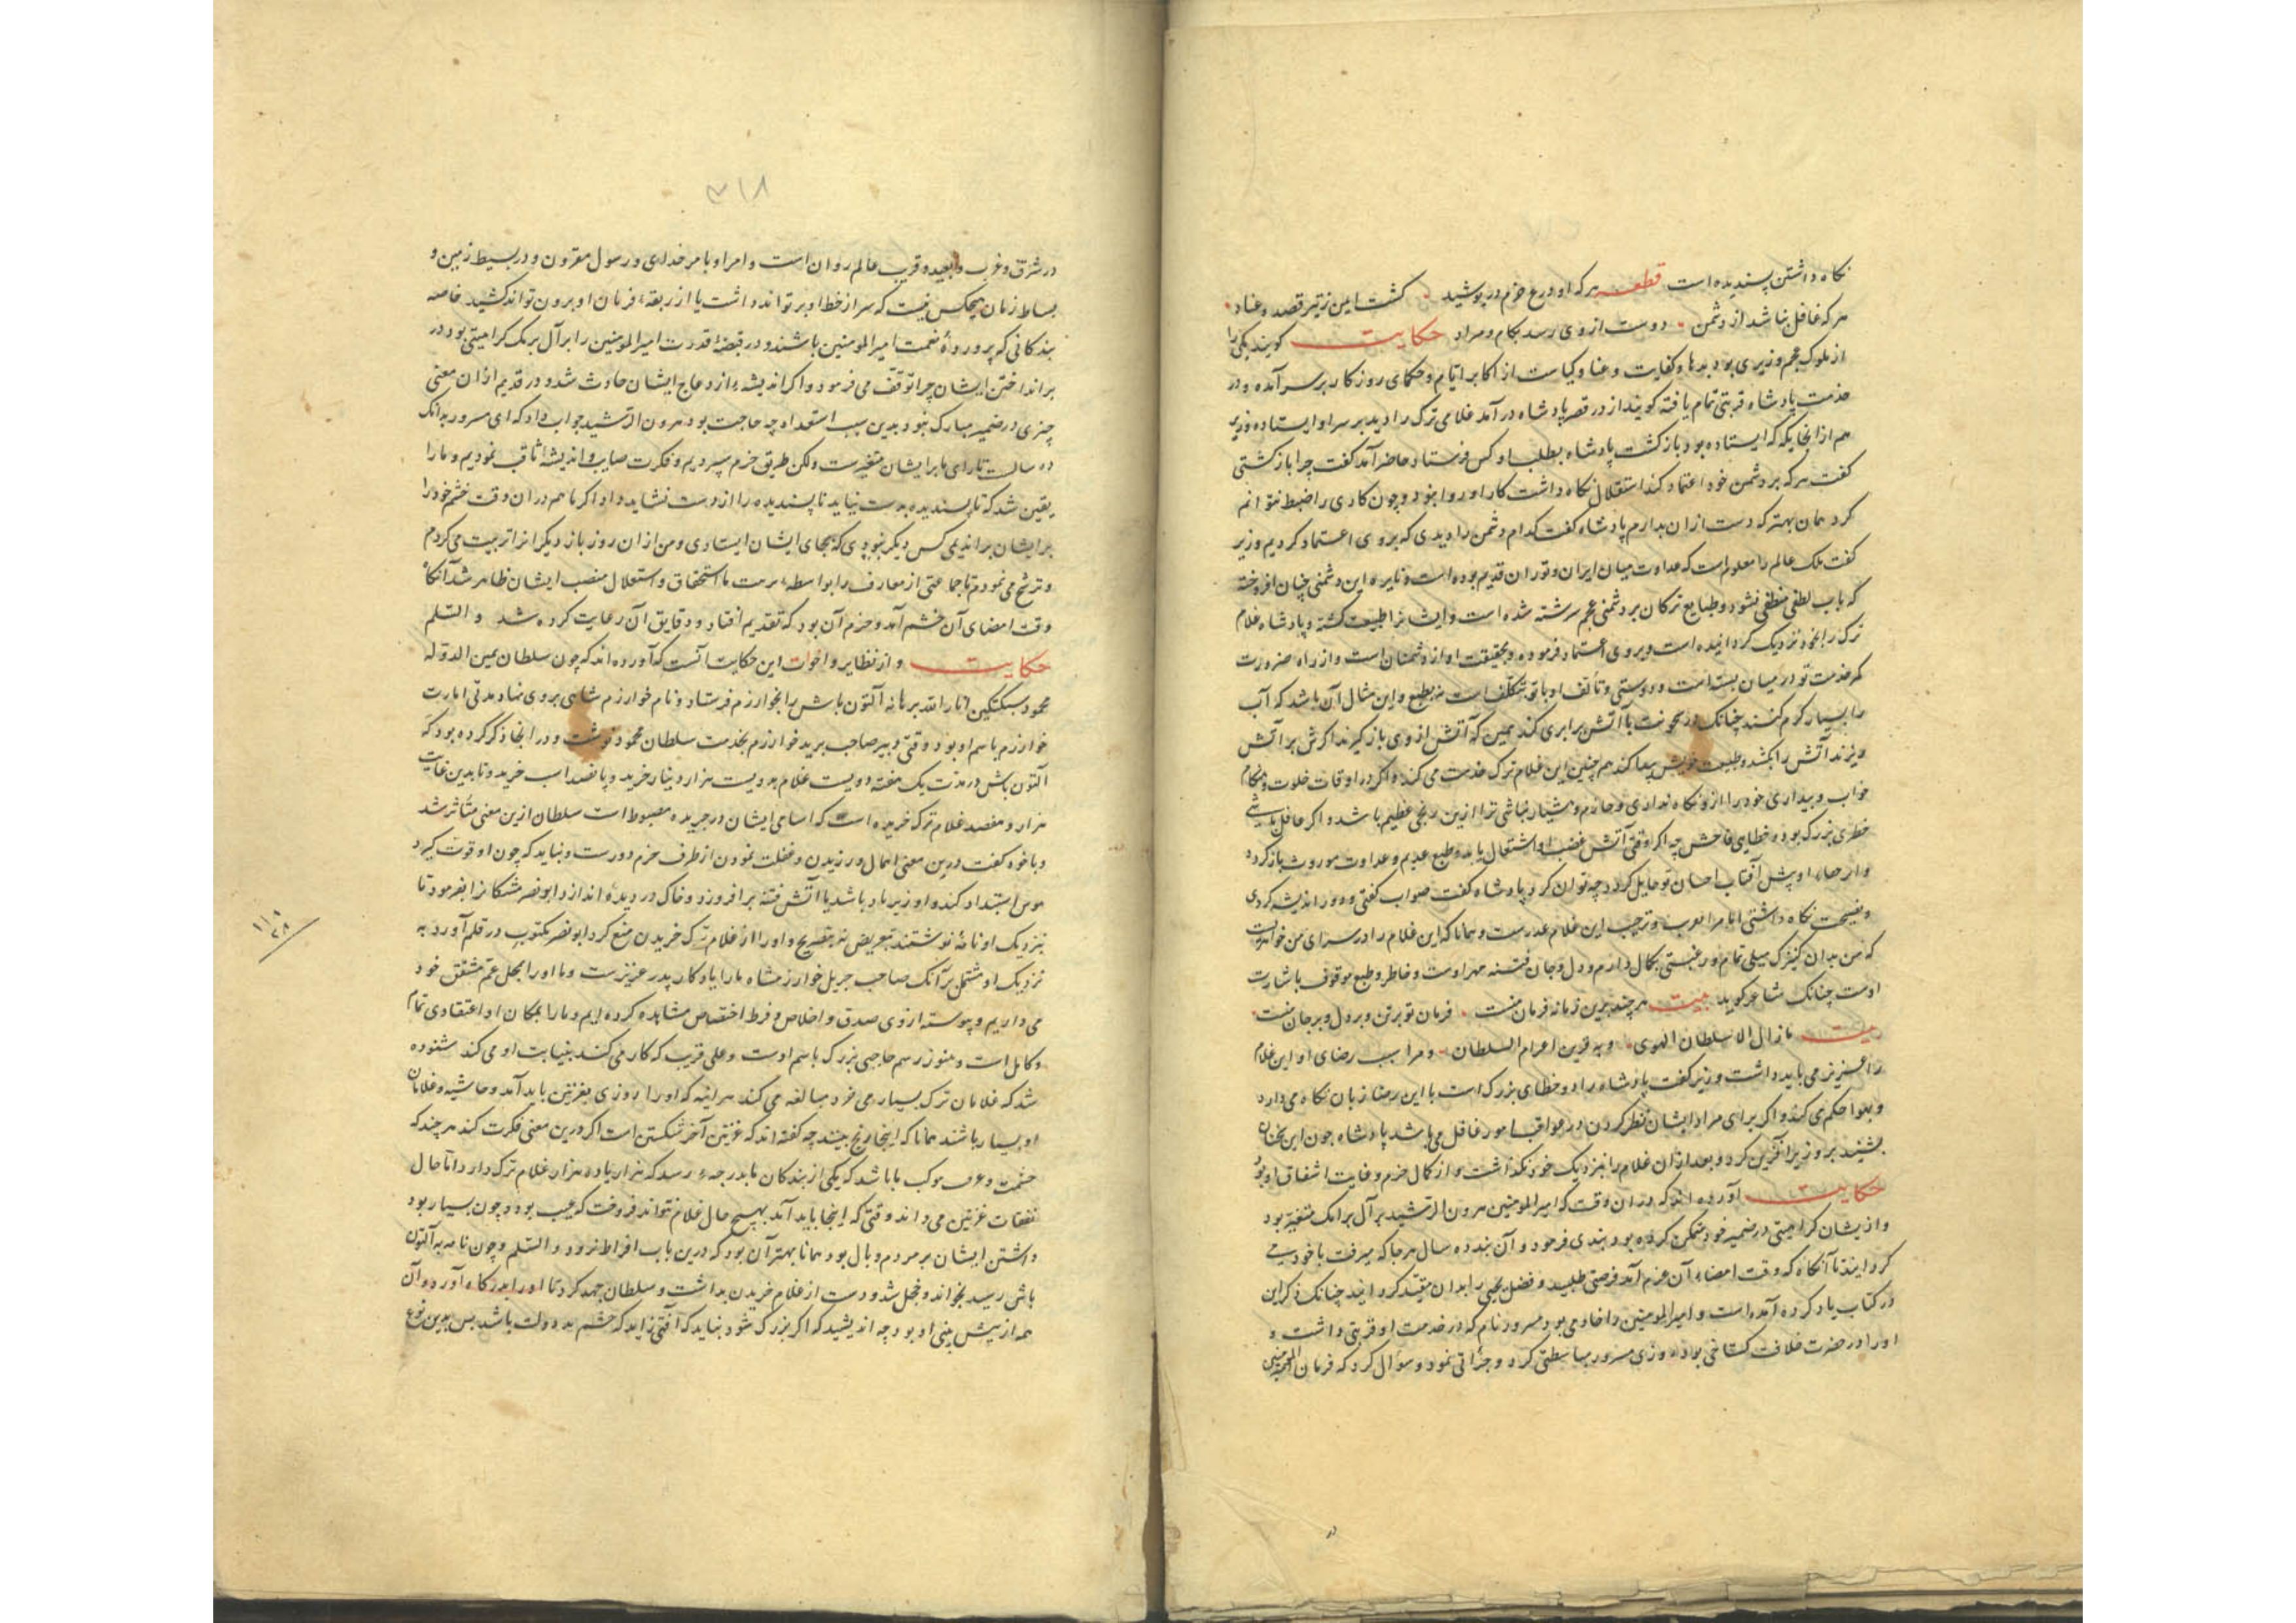 نکاه داشتن پسندیده است قطعه هر که او درع حزم در پوشید کشت ایمن ز تیر قصد و عناد
هر که غافل نباشد از دشمن دوست از وی رسد بکام و مراد حکایت کویند یکی را
از ملوک عجم وزیری بود بدها و کفایت و غنا و کیاست از اکابر ایام و حکمای روزکار بر سر آمده و در
خدمت پادشاه قربتی تمام یافته کویند از در قصر پادشاه در آمد غلامی ترک را دید بر سر او ایستاده وزیر
هم از انجایکه که ایستاده بود باز کشت پادشاه بطلب او کس فرستاد حاضر آمد کفت چرا باز کشتی
کفت هر که بر دشمن خود اعتماد کند استقلال نکاه داشت کار او روا نبود و چون کاری را ضبط نتوانم
کرد همان بهتر که دست ازان بدارم پادشاه کفت کدام دشمن را دیدی که بروی اعتماد کردیم وزیر
کفت ملک عالم را معلوم است که عداوت میان ایران و توران قدیم بوده است و نایره این دشمنی چنان افروخته
که باب لطفی منطفی نشود و طبایع ترکان بر دشمنی عجم سرشته شده است و ایشانرا طبیعت کشته و پادشاه غلام
ترک را بخود نزدیک کردانیده است و بروی اعتماد فرموده و بحقیقت او از دشمنان است و از راه ضرورت
کمر خدمت تو در میان بسته است و دوستی و تألف او با تو بتکلف است نه بطبع و این مثال آن باشد که آب
را بسیار کرم کنند چنانک در سخونت با آتش برابری کند همین که آتش از وی باز کیرند اکرش بر آتش
ریزند آتش را بکشد و طبیعت خویش پیدا کند هم چنین این غلام ترک خدمت می کند و اکر در اوقات خلوت و هنکام
خواب و بیداری خود را ازو نکاه نداری و حازم و هشیار نباشی ترا ازین رنجی عظیم باشد و اکر غافل باشی
خطری بزرک بود و خطایی فاحش چه اکر وقتی آتش غضب او اشتعال یابد و طبع عدیم و عداوت موروث باز کردد
و ابر حصار او پیش آفتاب احسان تو حایل کردد چه توان کرد پادشاه کفت صواب کفتی و دور اندیشه کردی
و نصیحت نکاه داشتی اما مرا تقریب و ترحیب این غلام عذریست و همانا که این غلام را در سرای من خواهریست
که من بدان کنیزک میلی تمام و رغبتی بکمال دارم و دل و جان فتنه مهر اوست و خاطر و طبع موقوف باشارت
اوست چنانک شاعر کوید بیت هر چند برین زمانه فرمان منست فرمان تو بر تن و بر دل و بر جان منست
بیت ما زال الا سلطان الهوی و به قرین اعرام السلطان و مرا سبب رضای او این غلام
را عزیز می باید داشت وزیر کفت پادشاه را دو خطای بزرک است با این رضا زبان نکاه می دارد
و بهوا حکم می کند و اکر برای مراد ایشان نظر کردن در عواقب امور غافل می باشد پادشاه چون این سخنان
بشنید بر وزیر آفرین کرد و بعد ازان غلام را بنزدیک خود نکذاشت و از کمال حزم و غایت اشفاق او بود
حکایت آورده اند که دران وقت که امیر المومنین هرون الرشید بر آل برامک متغیر بود
و از یشان کراهیتی در ضمیر خود متمکن کرده بود بندی فرمود و آن بند ده سال هر جا که میرفت با خود می
کردانید تا آنکاه که وقت امضاء آن عزم آمد فرصتی طلبید و فضل یحیی را بدان مقید کردانید چنانک ذکر این
در کتاب یاد کرده آمده است و امیر المومنین را خادمی بود مسرور نام که در خدمت او قربتی داشت و
او را در حضرت خلافت کستاخی بود روزی مسرور مباسطتی کرد و جرأتی نمود و سوال کرد که فرمان امیر المومنین
۳۱۸
در شرق و غرب و بعید و قریب عالم روان است و امر او بامر خدای و رسول مقرون و در بسیط زمین و
بساط زمان هیچکس نیست که سر از خط او بر تواند داشت یا از ربقه فرمان او برون تواند کشید خاصه
بندکانی که پرورده نعمت امیر المومنین باشند و در قبضه قدرت امیر المومنین را بر آل برمک کراهیتی بود در
بر انداختن ایشان چرا توقف می فرمود و اکر اندیشه ازعاج ایشان حادث شد و در قدیم ازان معنی
چیزی در ضمیر مبارک نبود بدین سبب استعداد چه حاجت بود هرون الرشید جواب داد که ای مسرور بدانک
ده سالست تا رای ما بر ایشان متغیرست ولکن طریق حزم سپردیم و فکرت صایب و اندیشه ثاقب نمودیم و ما را
یقین شد که تا پسندیده بدست نیاید ناپسندیده را از دست نشاید داد اکر ما هم دران وقت خشم خود را
بر ایشان براندیمی کس دیکر نبودی که بجای ایشان ایستادی و من ازان روز باز دیکرانرا تربیت می کردم
و ترشیح می نمودم تا جماعتی از معارف را بواسطه تربیت ما استحقاق و استقلال منصب ایشان ظاهر شد آنکاه
وقت امضای آن خشم آمد و حزم آن بود که تقدیم افتاد و دقایق آن رعایت کرده شد و السلم
حکایت و از نظایر و اخوات این حکایت آنست که آورده اند که چون سلطان یمین الدوله
محمود سبکتکین انار الله برهانه آلتون باش را بخوارزم فرستاد و نام خوارزم شاهی بر وی نهاد مدتی امارت
خوارزم باسم او بود وقتی دبیر صاحب برید خوارزم بخدمت سلطان محمود نوشت و در انجا ذکر کرده بود که
آلتون باش در مدت یک هفته دویست غلام بدویست هزار دینار خرید و پانصد اسب خرید و تا بدین غایت
هزار و هفصد غلام ترک خریده است که اسامی ایشان در جریده مضبوط است سلطان ازین معنی متأثر شد
و با خود کفت درین معنی اهمال ورزیدن و غفلت نمودن از طرف حزم دورست و نباید که چون او قوت کیرد
هوس استبداد کند و او زیر باد باشد یا آتش فتنه بر افروزد و خاک در دیده اندازد ابو نصر مشکانرا بفرمود تا
بنزدیک او نامه نوشتند بتعریض نه بتصریح و او را از غلام ترک خریدن منع کرد ابو نصر مکتوب در قلم آورد به
نزدیک او مشتمل بر آنک صاحب جریل خوارزمشاه ما را یادکار پدر عزیزست و ما او را بمحل عم مشفق خود
می داریم و پیوسته از وی صدق و اخلاص و فرط اختصاص مشاهده کرده ایم و ما را بمکان او اعتقادی تمام
و کامل است و هنوز رسم حاجبی بزرک باسم اوست و علی قریب که کار می کند بنیابت او می کند شنوده
شد که غلامان ترک بسیار می خرد مبالغه می کند هر اینه که او را روزی بغزنین باید آمد و حاشیه و غلامان
او بسیار باشند همانا که اینجا رنج بینند چه کفته اند که غزنین آخر شکستن است اکر درین معنی فکرت کند هر چند که
حشمت و عرض موکب ما باشد که یکی از بندکان ما بدرجه رسد که هزار یا ده هزار غلام ترک دارد اما حال
نفقات غزنین می داند وقتی که اینجا باید آمد بهیچ حال غلام نتواند فروخت که عیب بود و چون بسیار بود
داشتن ایشان بر مردم وبال بود همانا بهتر آن بود که درین باب افراط نرود و السلم و چون نامه به آلتون
باش رسید بخواند و خجل شد و دست از غلام خریدن بداشت و سلطان جهد کرد تا او را بدرکاه آورد و آن
همه از پیش بینی او بود چه اندیشید که اکر بزرک شود نباید که آفتی زاید که خشم بد دولت باشد پس بدین نوع